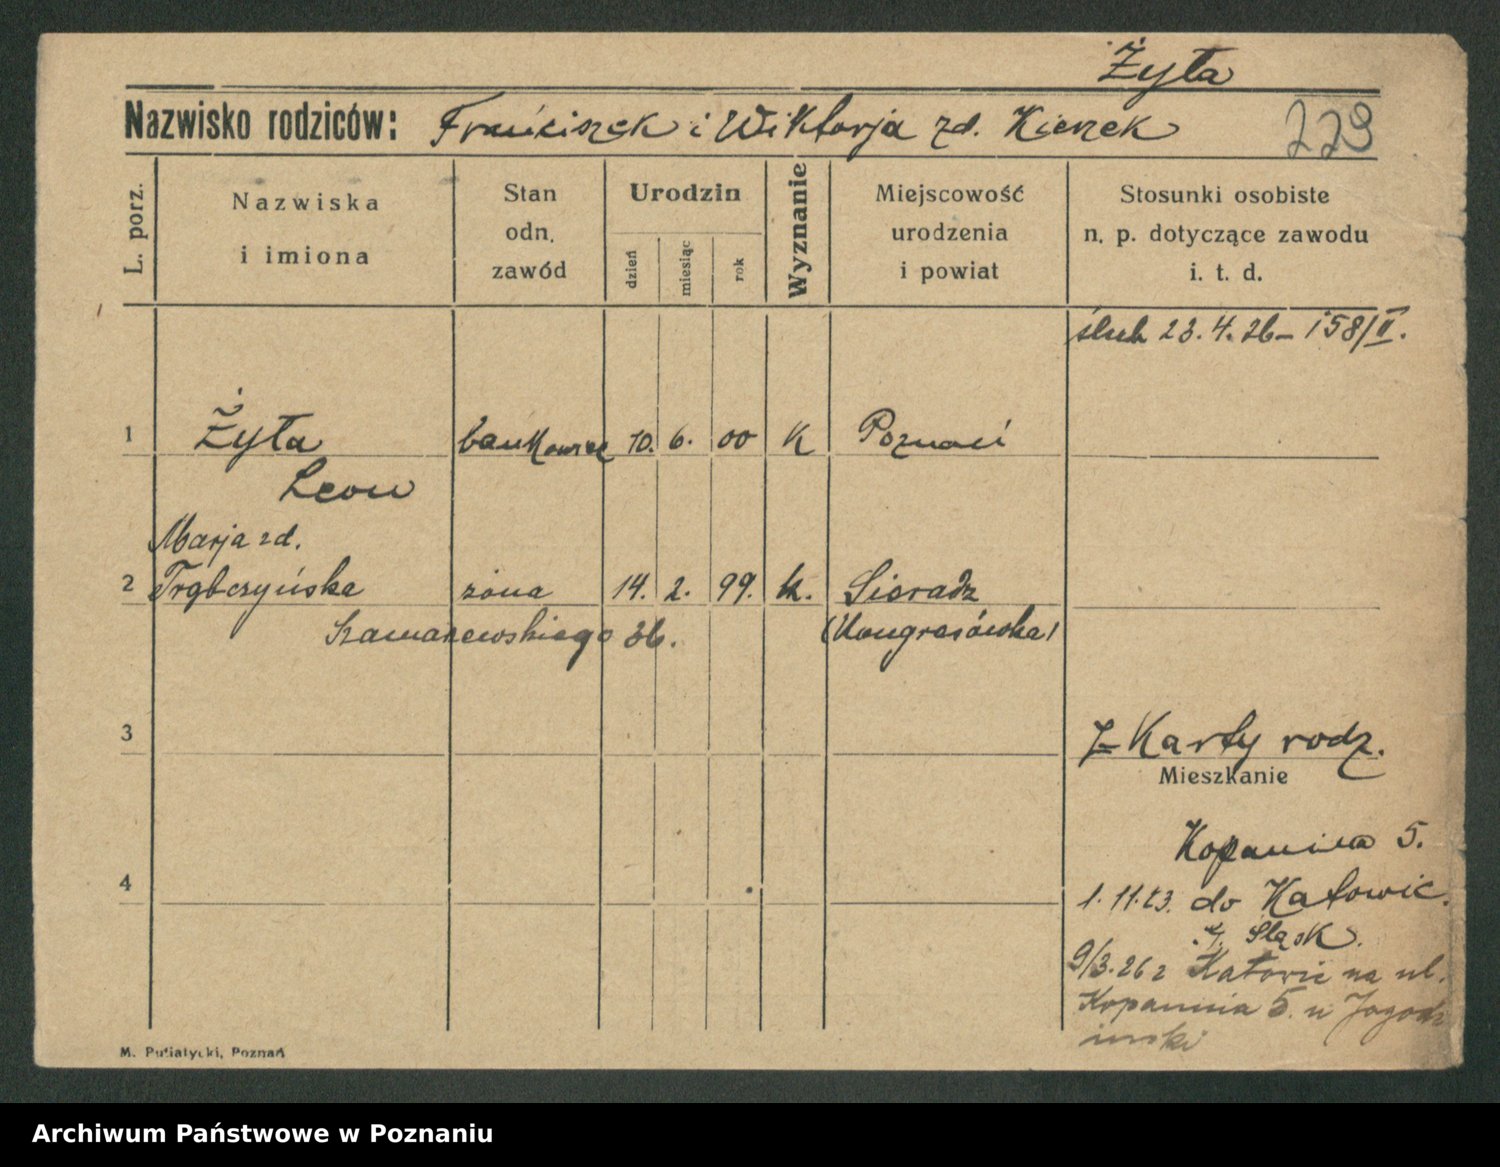 Żyła
Nazwisko rodziców: Franciszek i Wiktorja zd. Kierzek
229
L. porz.
Nazwiska
i imiona
Stan
odn.
zawód
Urodzin
dzień
miesiąc
rok
Wyznanie
Miejscowość
urodzenia
i powiat
Stosunki osobiste
n. p. dotyczące zawodu
i. t. d.
ślub 23.4.26 – 158/II.
1 Żyła bankowiec 10. 6. 00 K Poznań
Leon
Marja zd.
2 Trąbczyńska żona 14. 2. 99. k. Sieradz
Szamarzewskiego 36. (Kongresówka)
3
Z Karty rodz.
Mieszkanie
Kopanina 5.
4
1.11.23. do Katowic.
G. Śląsk.
9/3.26 z Katowic na ul.
Kopanina 5. u Jagodz
inski
M. Putiatycki, Poznań
Archiwum Państwowe w Poznaniu